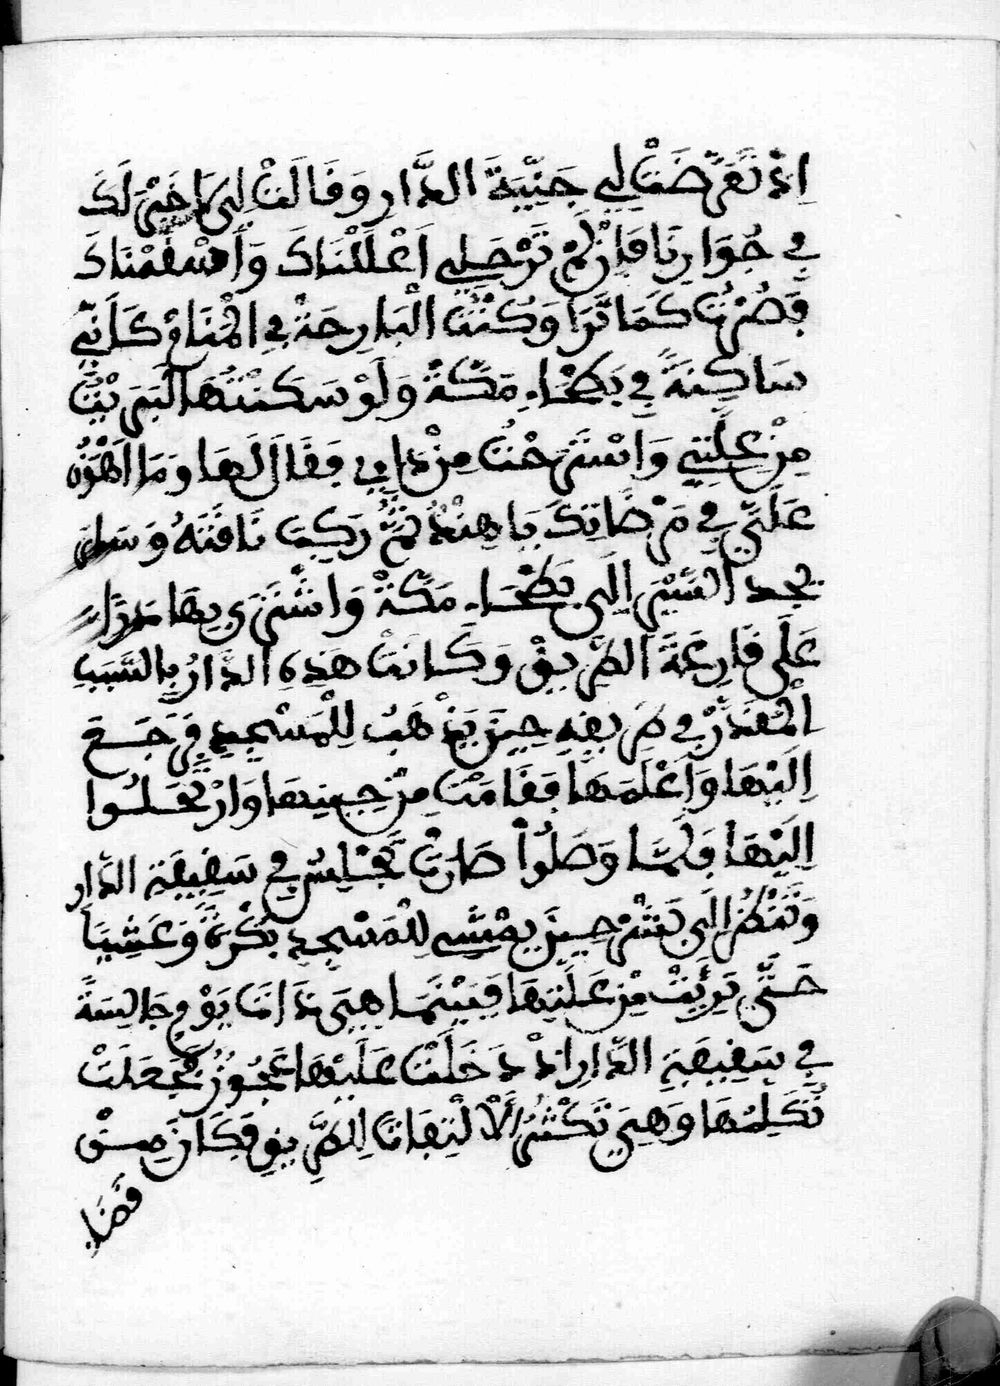 اِذْ تَعَرَّضَتْ لِي جَنِّيَّةُ الدَّارِ وَقَالَتْ لِي لَا خَيْرَ لَكَ
فِي جُوَارِنَا فَاِنْ لَمْ تَرْحَلِي اَعْلَلْنَاكَ وَاَسْقَمْنَاكَ
فَصُرْتُ كَمَا تَرَا وَكُنْتُ الْبَارِحَةْ فِي الْمَنَامْ كَاَنِّي
سَاكِنَةً فِي بَطْحَاءِ مَكَّةَ وَلَوْ سَكَنْتُهَا لَبَرِيْتُ
مِنْ عِلَّتِي وَاسْتَرَحْتُ مِنْ دَائِي فَقَالَ لَهَا وَمَا اَهْوَنُ
عَلَيَّ فِي مَرْضَاتِكَ يَا هِنْدُ ثُمَّ رَكِبَ نَاقَتَهُ وَسَارَ
يجد السَّيْرَ اِلَى بَطْحَاءِ مَكَّةْ وَاشْتَرَى بِهَا دَارًا
عَلَى قَارِعَةِ الطَّرِيقْ وَكَانَتْ هَذِهِ الدَّارُ بِالسَّبَبِ
الْمُقَدَّرْ فِي طَرِيقِهِ حِينَ يَذْهَبُ لِلْمَسْجِدِ فَرَجَعَ
اِلَيْهَا وَاَعْلَمَهَا فَقَامَتْ مِنْ حِينِهَا وَارْتَحَلُوا
اِلَيْهَا فَلَمَّا وَصَلُوا صَارَتْ تَجْلِسُ فِي سَقِيفَةِ الدَّارِ
وَتَنْظُرُ اِلَى بَشَرْ حِينَ يَمْشِي لِلْمَسْجِدِ بُكْرَةً وَعَشِيًّا
حَتَّى بَرِيَتْ مِنْ عِلَّتِهَا فَبَيْنَمَا هِيَ ذَاتَ يَوْمٍ جَالِسَةً
فِي سَقِيفَةِ الدَّارِ اِذْ دَخَلَتْ عَلَيْهَا عَجُوزٌ فَجَعَلَتْ
تُكَلِّمُهَا وَهِيَ تَكْثُرُ الْاَلْتِفَاتَ لِلطَّرِيقِ فَكَانَ مِمَّنْ